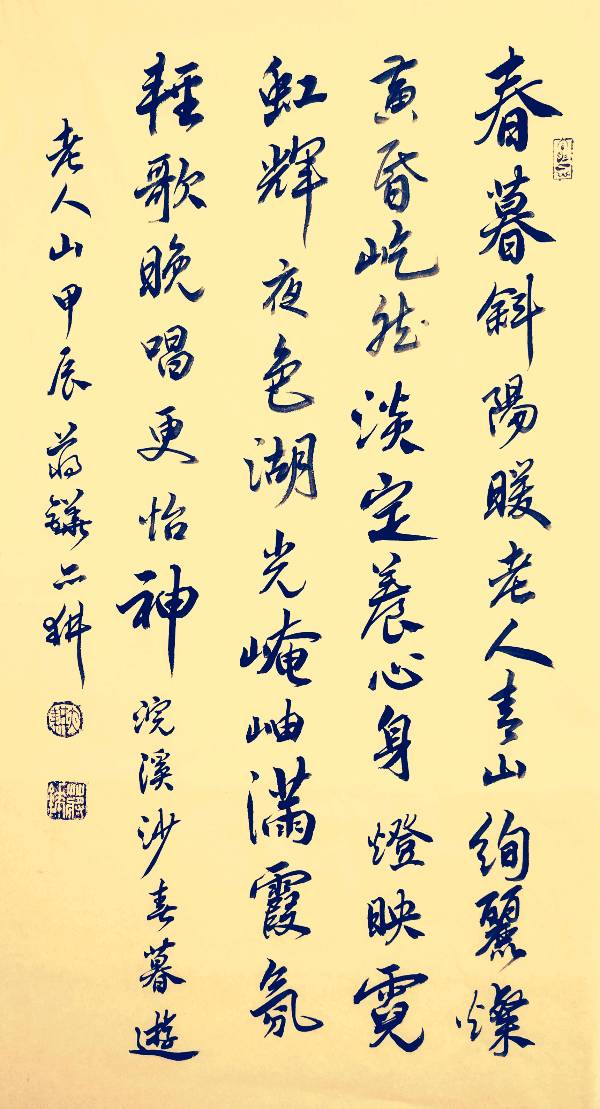 春暮斜陽暖老人青山絢麗燦
黃昏屹然淡定養心身燈映霓
虹輝夜色湖光崦岫滿霞氛
輕歌晚唱更怡神浣溪沙春暮遊
老人山甲辰蔣